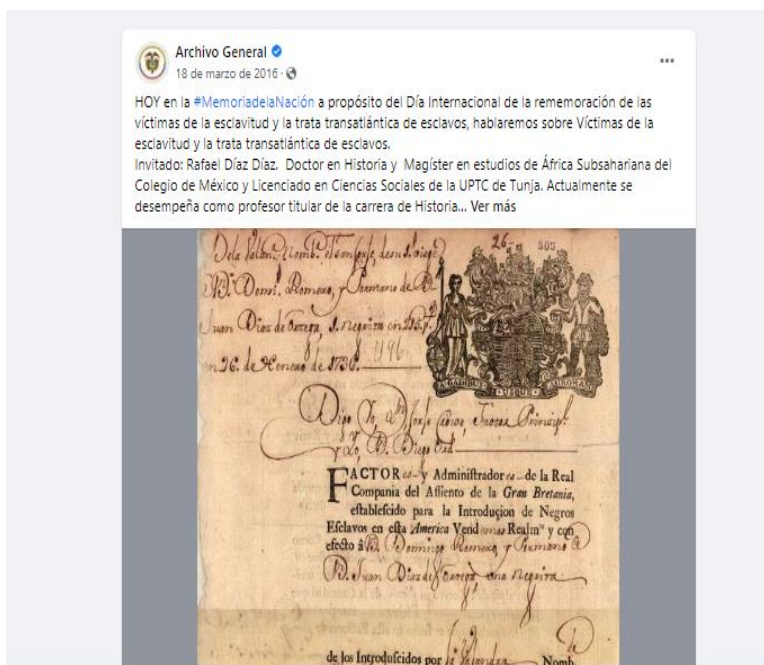 Archivo General
18 de marzo de 2016
HOY en la #MemoriadelaNación a propósito del Día Internacional de la rememoración de las
víctimas de la esclavitud y la trata transatlántica de esclavos, hablaremos sobre Víctimas de la
esclavitud y la trata transatlántica de esclavos.
Invitado: Rafael Díaz Díaz. Doctor en Historia y Magíster en estudios de África Subsahariana del
Colegio de México y Licenciado en Ciencias Sociales de la UPTC de Tunja. Actualmente se
desempeña como profesor titular de la carrera de Historia... Ver más
26
505
Romero, y
Juan Diaz de
en 26. de de 1736.
A GADIBUS USQUE AURORAM
Digo Yo, Dn
y Yo, D. Diego
FACTOR es y Adminiſtrador es de la Real
Compania del Aſſiento de la Gran Bretania,
eſtableſcido para la Introduçion de Negros
Eſclavos en eſta America Vend Realmte y con
efecto â D. Domingo Romero, y
D. Juan Diaz de una Negrita
de los Introduſcidos por Nomb.